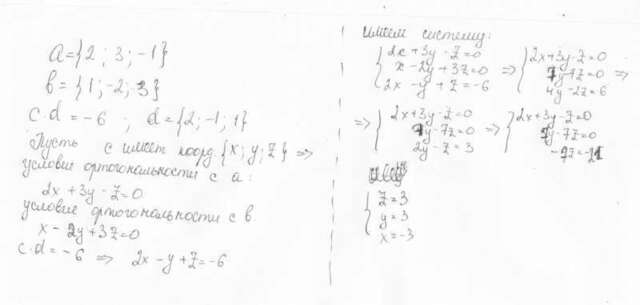 a={2; 3; -1}
b={1; -2; 3}
c·d=-6; d={2; -1; 1}
Пусть c имеет коорд {x; y; z} =>
условие ортогональности c a:
2x+3y-z=0
условие ортогональности c b
x-2y+3z=0
c·d=-6 => 2x-y+z=-6
имеем систему:
{2x+3y-z=0 {2x+3y-z=0
x-2y+3z=0 => 7y-7z=0 =>
2x-y+z=-6 4y-2z=6
=> {2x+3y-z=0 {2x+3y-z=0
7y-7z=0 => 7y-7z=0
2y-z=3 -7z=-21
{z=3
y=3
x=-3